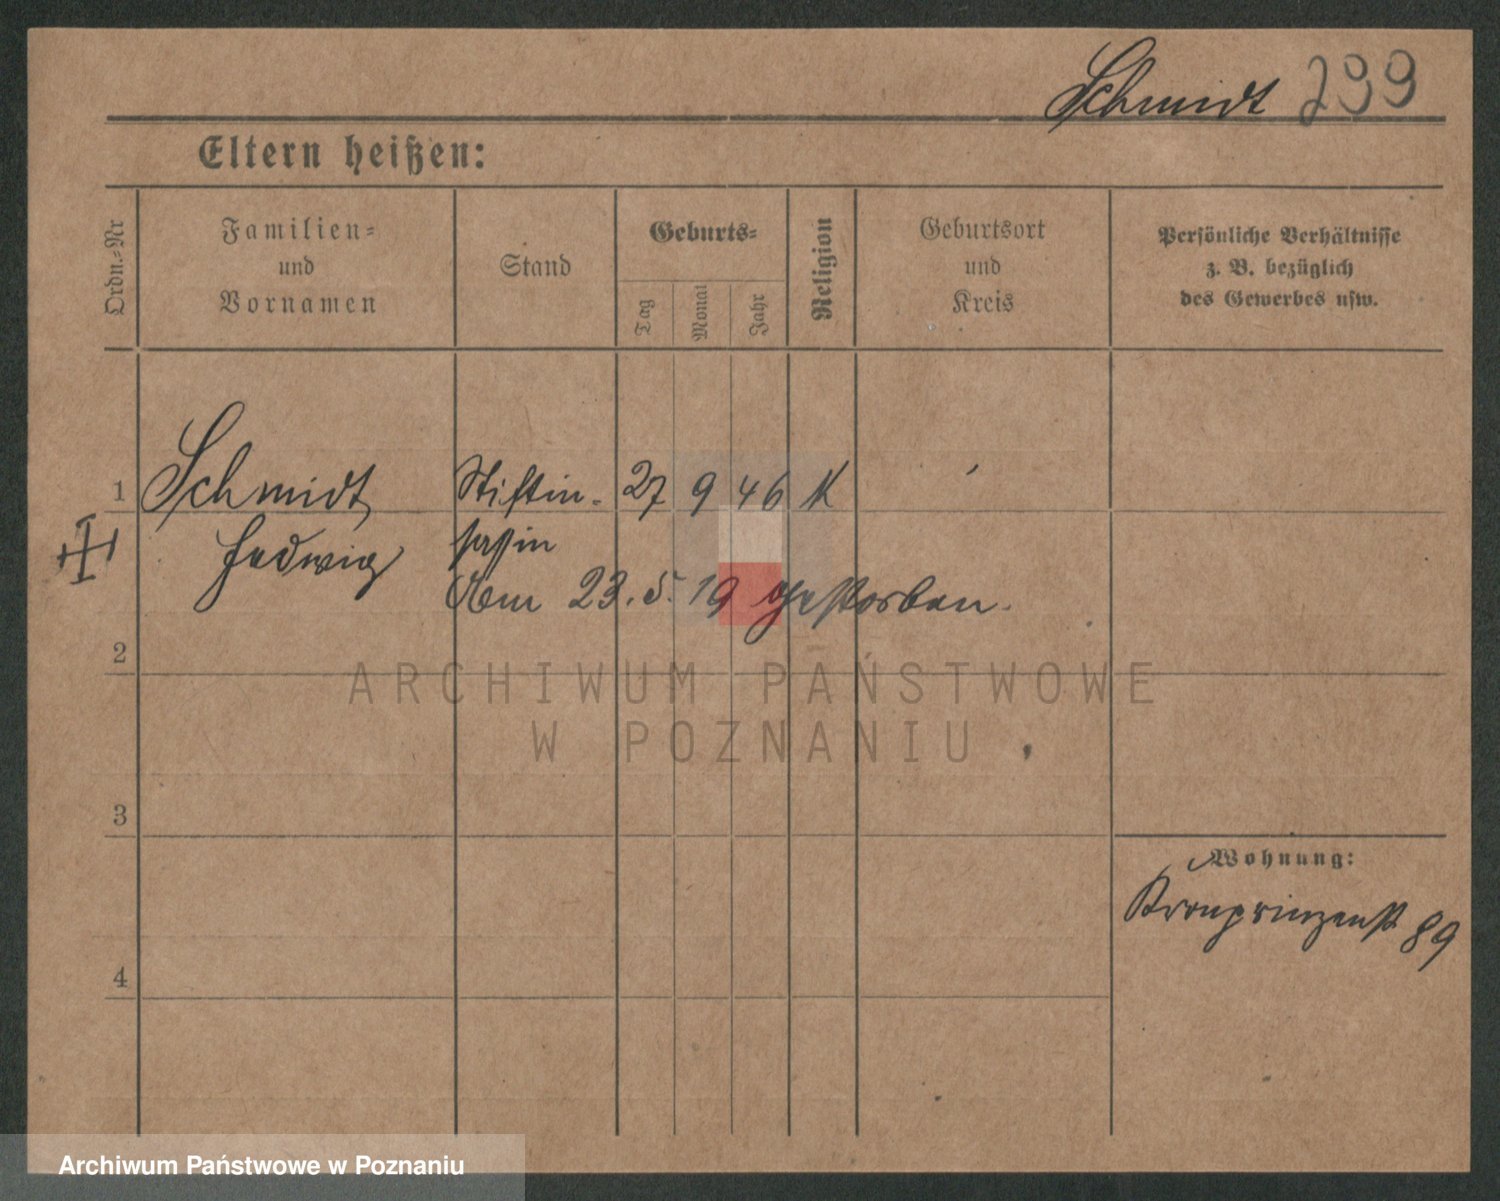 Schmidt 299
Eltern heißen:
Ordn.-Nr
Familien-
und
Vornamen
Stand
Geburts-
Tag
Monat
Jahr
Religion
Geburtsort
und
Kreis
Persönliche Verhältnisse
z. B. bezüglich
des Gewerbes usw.
1 Schmidt Stiftin- 27 9 46 K
Hedwig sassin
Am 23.5.19 gestorben.
2
ARCHIWUM PAŃSTWOWE
W POZNANIU
3
Wohnung:
Kronprinzenst 89
4
Archiwum Państwowe w Poznaniu